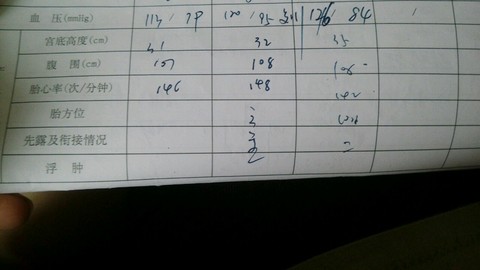 血 压(mmHg) 113 / 78 120 / 95 126 / 84
宫底高度(cm) 31 32 35
腹 围(cm) 107 108 108
胎心率(次/分钟) 146 148 142
胎方位
先露及衔接情况
浮 肿